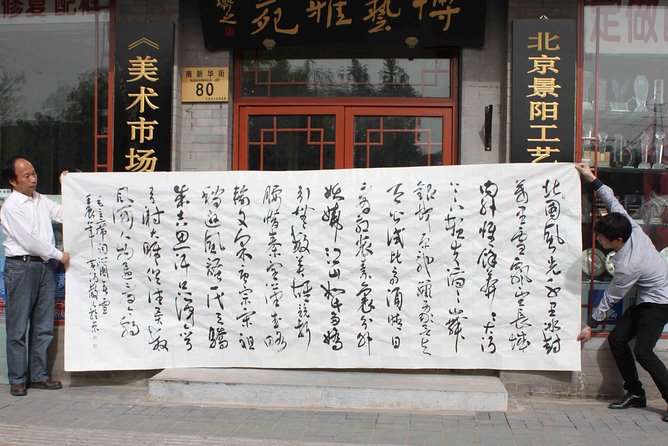 苑雅藝博
修复 配框
定做
南新华街
80
《美术市场
北京景阳工艺
北国風光千里冰封
萬里雪飘望長城
内外惟餘莽莽大河
上下顿失滔滔山舞
銀蛇原驰蜡象欲与天
公试比高须晴日
看红装素裹分外
妖娆江山如此多嬌
引無数英雄競折
腰惜秦皇漢武略
输文采唐宗宋祖
稍逊風骚一代天骄
成吉思汗只识弯
弓射大雕俱往矣数
風流人物还看今朝
毛主席词沁園春雪
壬辰年